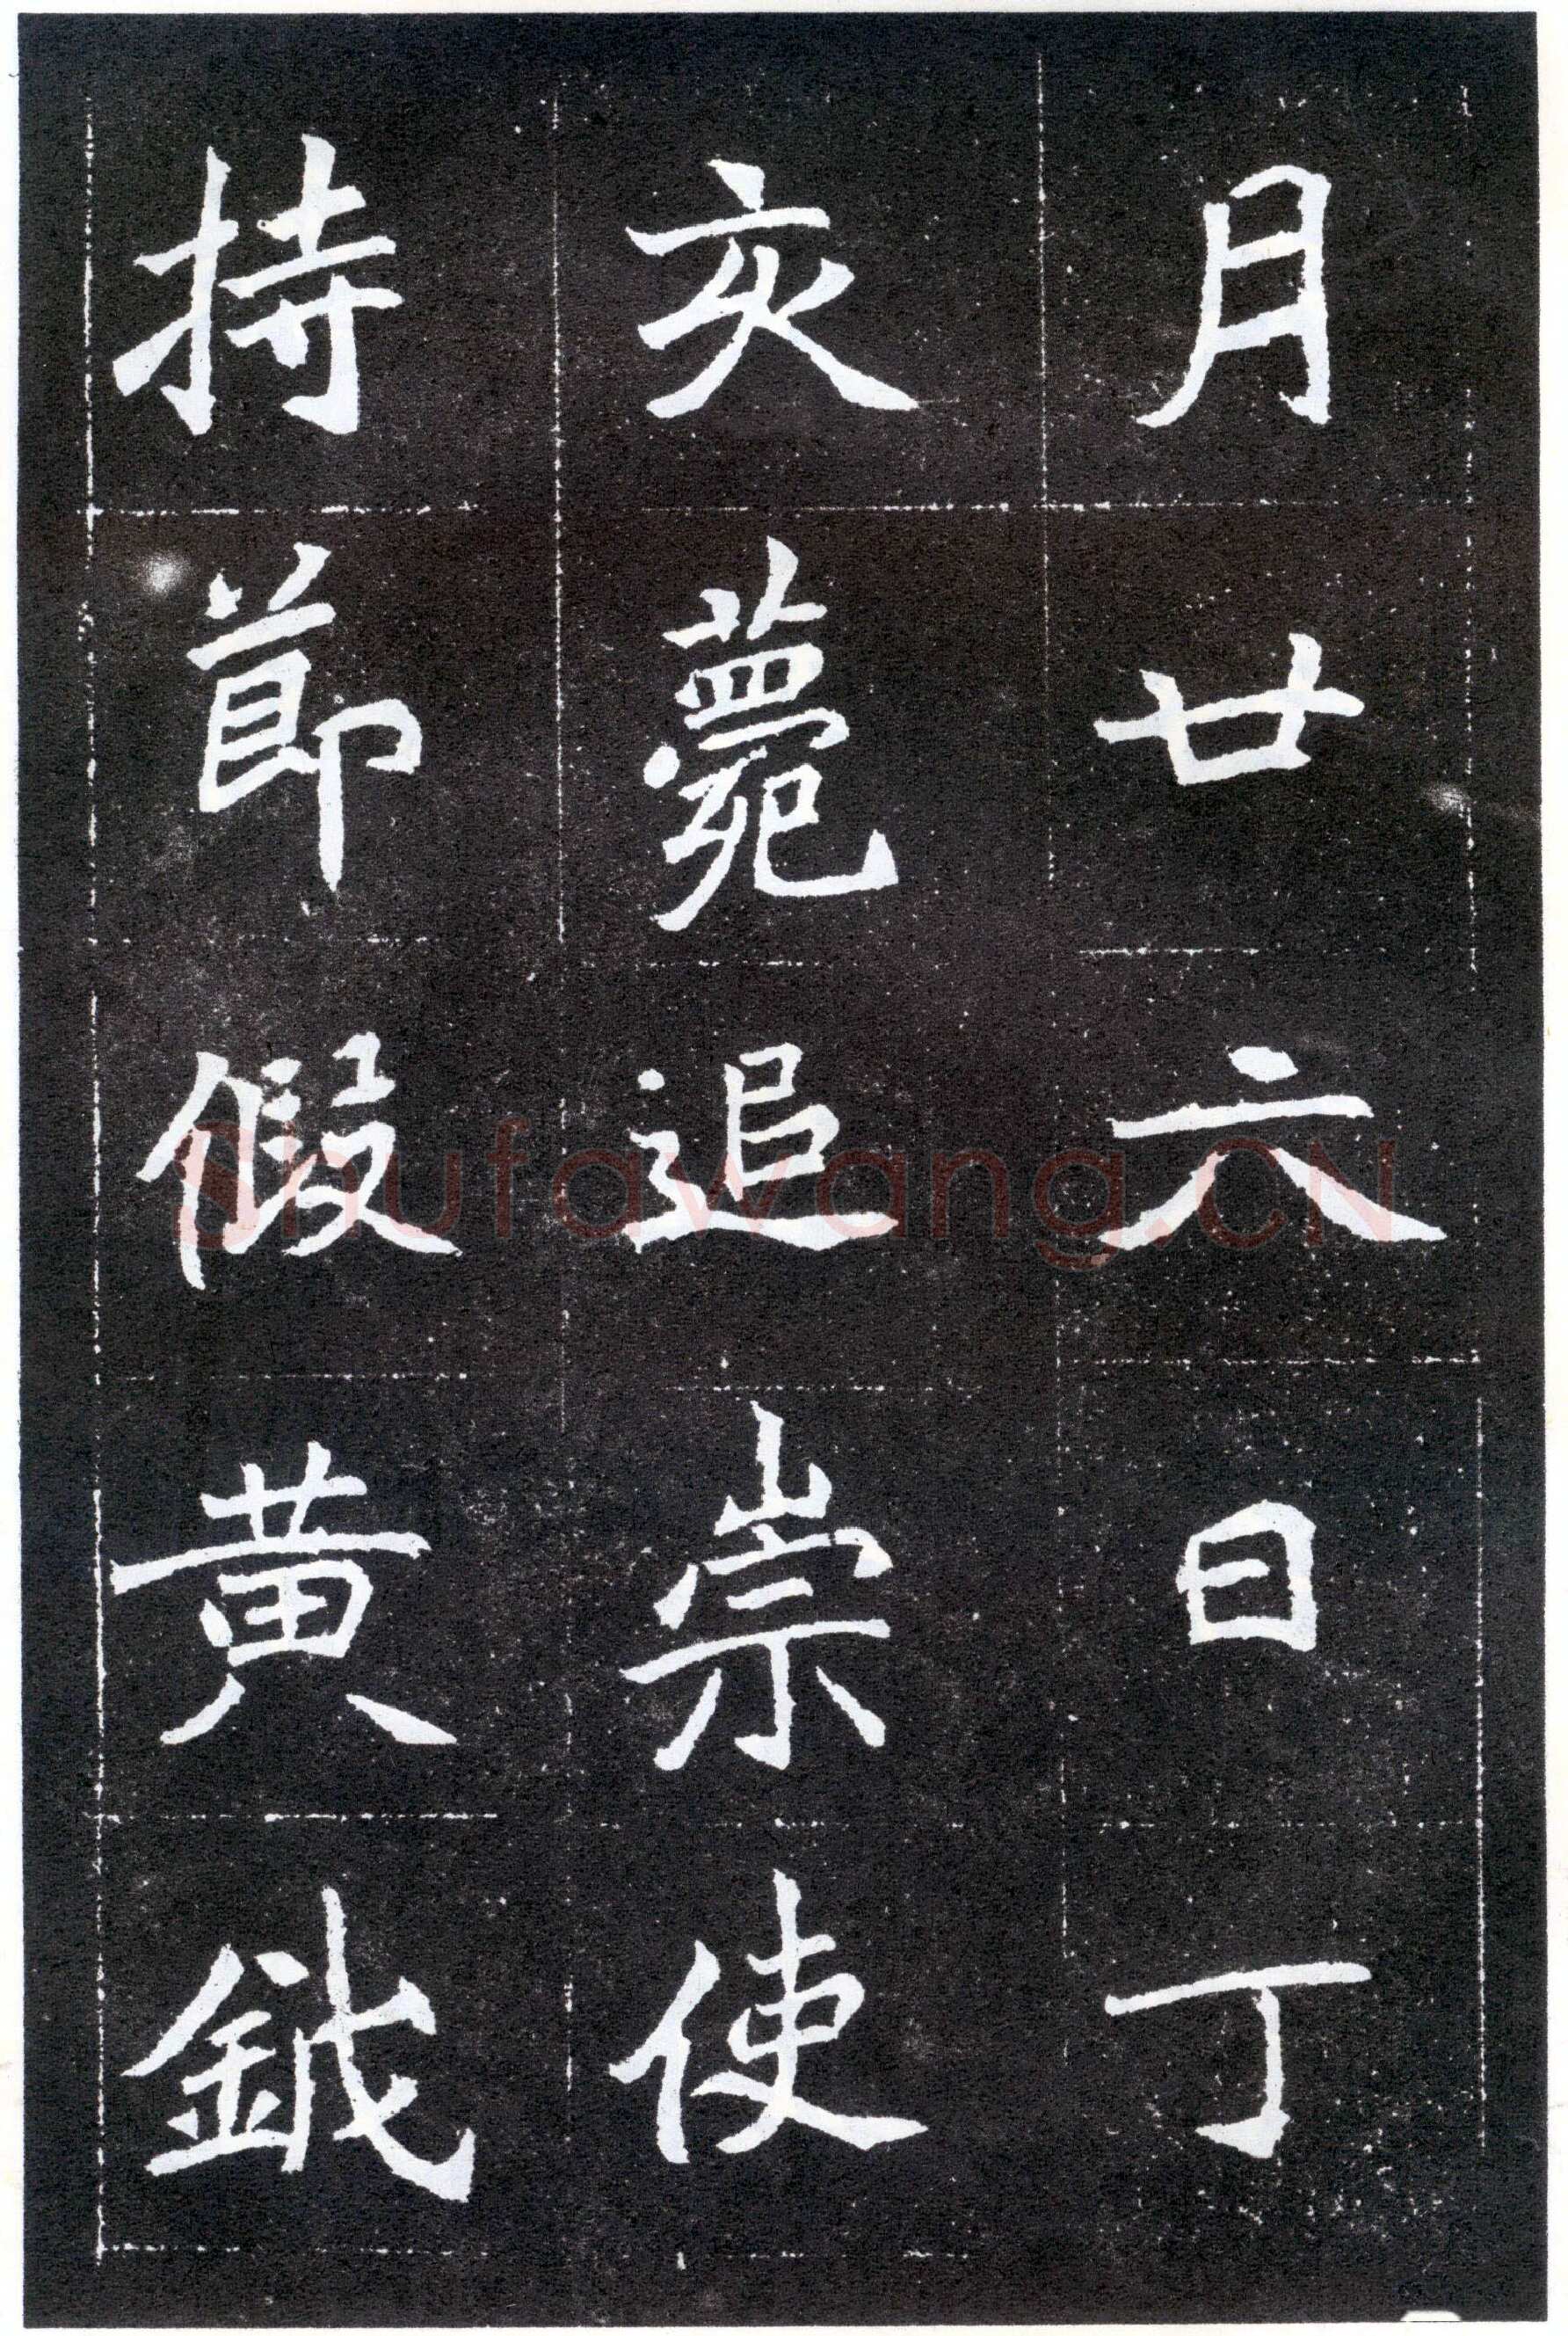 月廿六日丁
亥薨追崇使
持節假黃鉞
Shufawang.CN